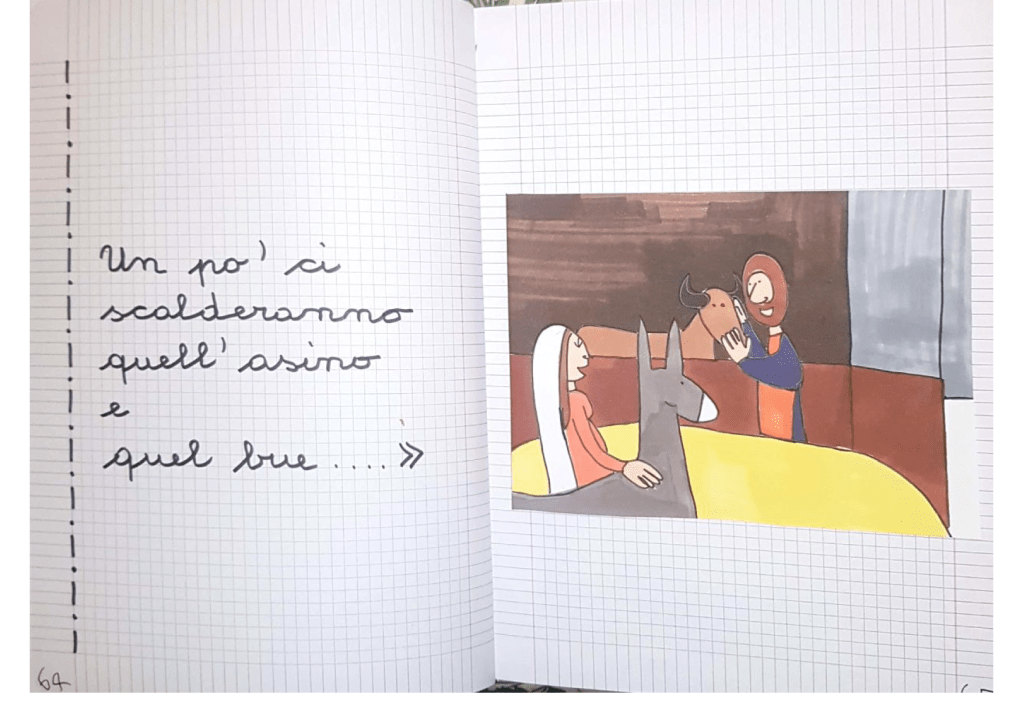 Un po' ci
scalderanno
quell'asino
e
quel bue ....»
64